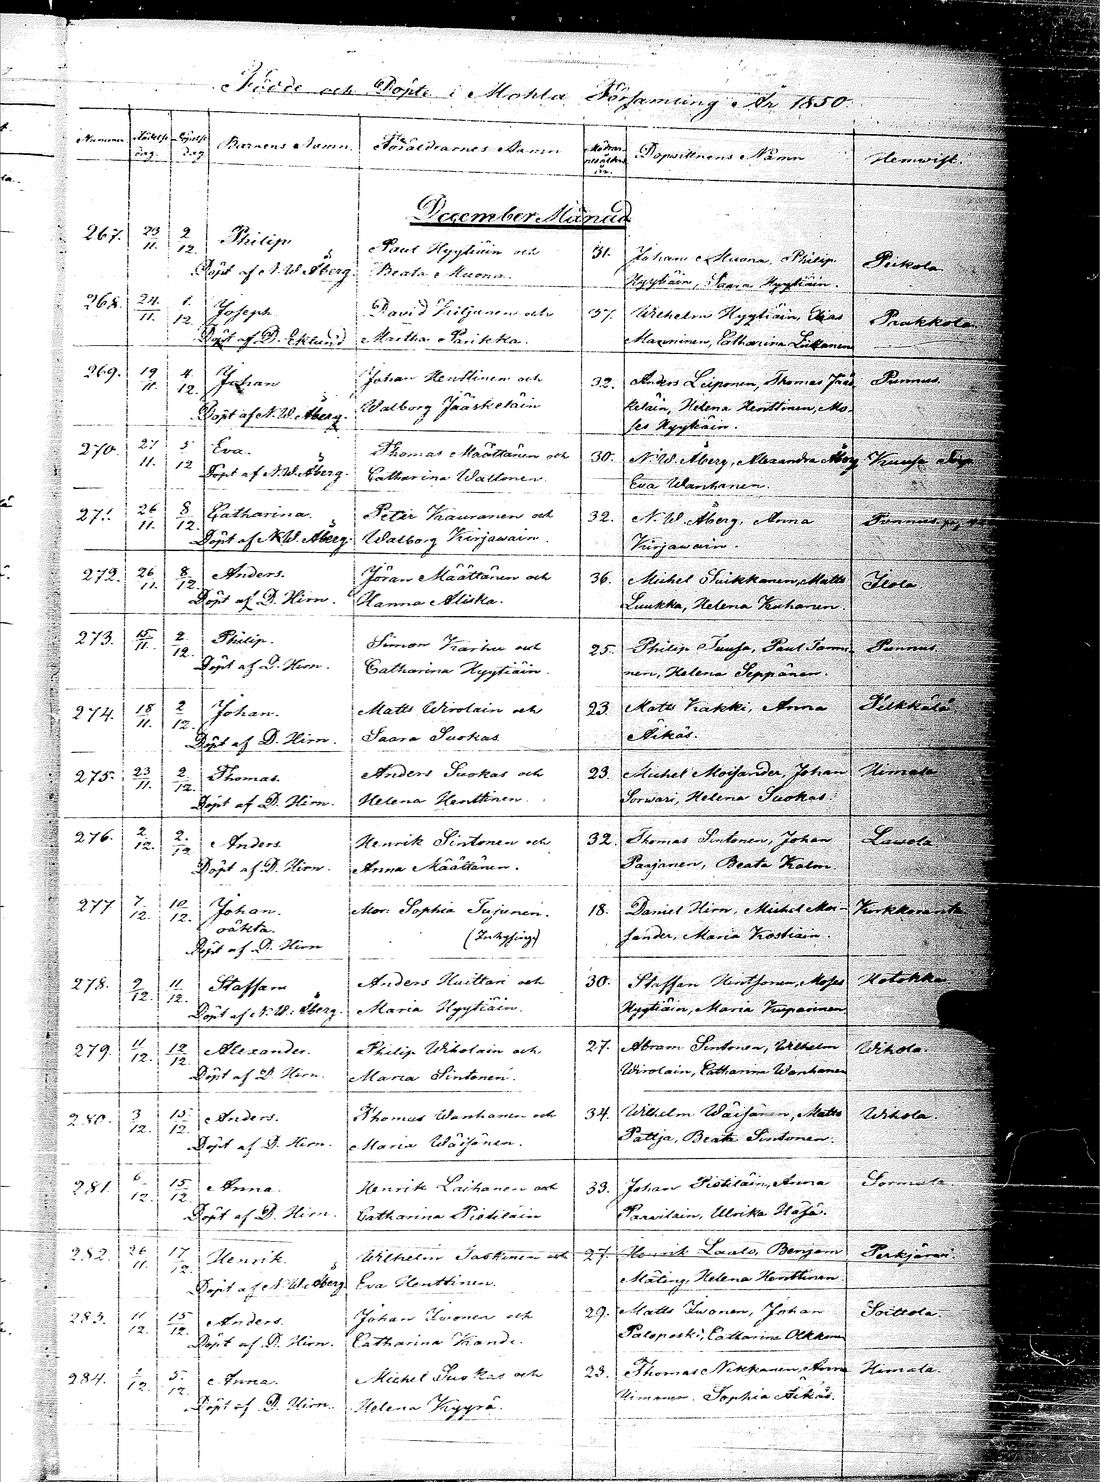 Födde och Döpte i Mohla Församling År 1850.
Nummer Födelse dag. Döpelse dag Barnens Namn. Föräldrarnes Namn Modrens ålders år. Dopvittnens Namn Hemvist.
December Månad
267. 23/11. 2/12. Philip. Paul Hyytiäin och 31. Johan Muona, Philip
Döpt af N. W. Åberg. Beata Muona. Hyytiäin, Saara Hyytiäin. Piikola
268. 24/11. 1/12. Joseph David Kiljunen och 37. Wilhelm Hyytiäin, Elias Paakkola
Döpt af D. Eklund Martha Parikka. Mamninen, Catharina Liikanen
269. 19/11. 4/12. Johan Johan Henttinen och 32. Anders Liiponen, Thomas Jääs- Punnus.
Döpt af N. W. Åberg. Walborg Jääskeläin keläin, Helena Henttinen, Mo-
ses Hyytiäin.
270. 27/11. 5/12 Eva. Thomas Määttänen och 30. N. W. Åberg, Alexandra Åberg Kuusa
Döpt af N. W. Åberg. Catharina Wattonen. Eva Wanhanen.
271. 26/11. 8/12. Catharina. Peter Kauranen och 32. N. W. Åberg, Anna Punnus
Döpt af N. W. Åberg. Walborg Kirjawain. Kirjawain.
272. 26/11. 8/12. Anders. Jöran Määttänen och 36. Michel Suikkanen, Matts Ilola
Döpt af D. Hirn. Hanna Aliska. Luukka, Helena Kuhanen.
273. 15/11. 2/12. Philip. Simon Karhu och 25. Philip Tuusa, Paul Tammi- Punnus.
Döpt af D. Hirn. Catharina Hyytiäin. nen, Helena Seppänen.
274. 18/11. 2/12. Johan. Matts Wirolain och 23. Matts Kakki, Anna Pilkkälä
Döpt af D. Hirn. Saara Suokas Äikäs.
275. 23/11. 2/12. Thomas. Anders Suokas och 23. Michel Moisander, Johan Himala.
Döpt af D. Hirn. Helena Henttinen. Sorwari, Helena Suokas.
276. 2/12. 2/12 Anders Henrik Sintonen och 32. Thomas Sintonen, Johan Lawola
Döpt af D. Hirn. Anna Määttänen. Paajanen, Beata Kalm.
277 7/12. 10/12. Johan. Mor: Sophia Tujunen. 18. Daniel Hirn, Michel Moi- Kirkkoranta
oäkta. (Inhysing) sander, Maria Kostiain.
Döpt af D. Hirn
278. 9/12. 11/12. Staffan Anders Huittari och 30. Staffan Hentsonen, Moses Hotokka
Döpt af N. W. Åberg. Maria Hyytiäin. Hyytiäin, Maria Kuparinen
279. 11/12. 12/12. Alexander. Philip Wiholain och 27. Abram Sintonen, Wilhelm Wihola.
Döpt af D. Hirn. Maria Sintonen. Wirolain, Catharina Wanhanen
280. 3/12. 15/12. Anders. Thomas Wanhanen och 34. Wilhelm Wäisänen, Matts Wihola.
Döpt af D. Hirn. Maria Wäisänen. Pattja, Beata Sintonen.
281. 6/12. 15/12. Anna. Henrik Laihanen och 33. Johan Pistiläin, Anna Sormula.
Döpt af D. Hirn. Catharina Pistiläin Paawilain, Ulrika Häfä.
282. 26/11. 17/12. Henrik. Wilhelm Jaskinen och 27. Henrik Laalo, Benjam Perkjärvi
Döpt af N. W. Åberg. Eva Henttinen. Mäling, Helena Henttinen
283. 11/12. 15/12. Anders. Johan Iwonen och 29. Matts Iwonen, Johan Soittola.
Döpt af D. Hirn. Catharina Kandi. Paloposki, Catharina Olkkonen
284. 1/12 5/12. Anna. Michel Suokas och 23. Thomas Nikkanen, Anna Himala
Döpt af D. Hirn. Helena Kyyrä. Himanen, Sophia Äikäs.